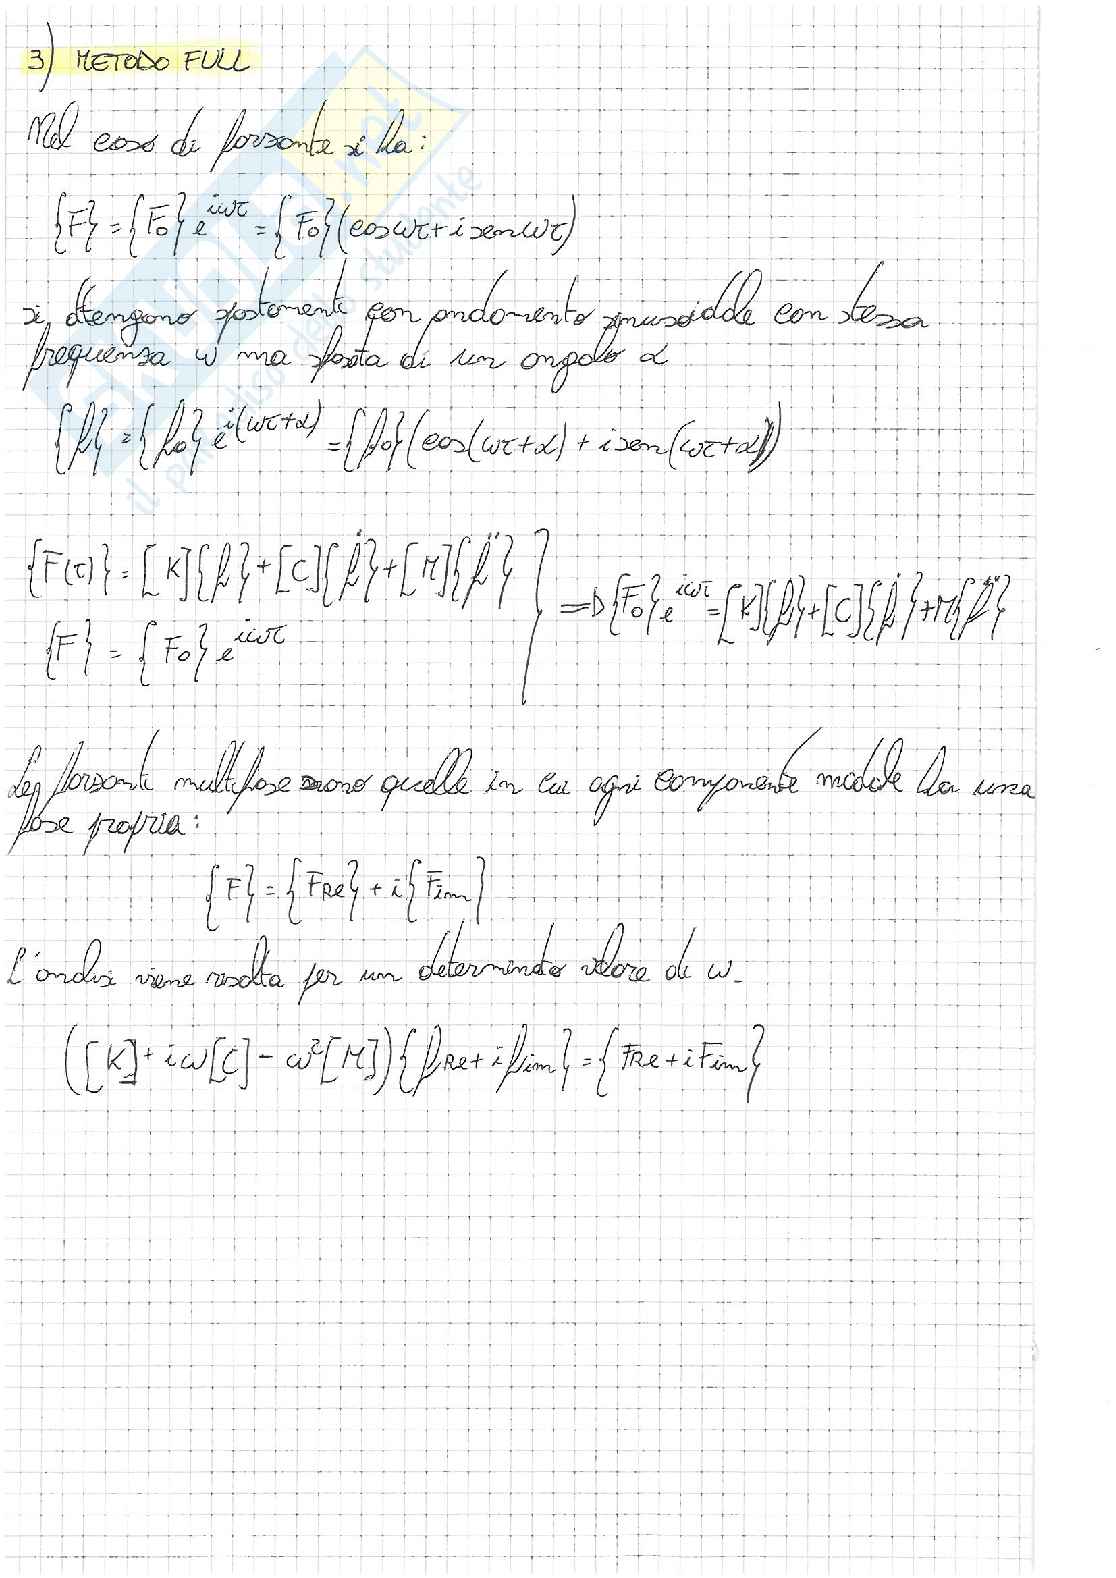 3) METODO FULL
Nel caso di forzante si ha:
{F} = {F₀} e^{iωτ} = {F₀}(cosωτ + i senωτ)
si ottengono spostamenti con andamento sinusoidale con stessa
frequenza ω ma sfasata di un angolo α
{f} = {f₀} e^{i(ωτ+α)} = {f₀}(cos(ωτ+α) + i sen(ωτ+α))
{F(τ)} = [K]{f} + [C]{ḟ} + [M]{f̈}
{F} = {F₀} e^{iωτ}
=> {F₀} e^{iωτ} = [K]{f} + [C]{ḟ} + M{f̈}
Le forzanti multifase sono quelle in cui ogni componente modale ha una
fase propria:
{F} = {FRe} + i{Fim}
L'analisi viene risolta per un determinato valore di ω.
([K] + iω[C] - ω²[M]){fRe + i fim} = {FRe + i Fim}